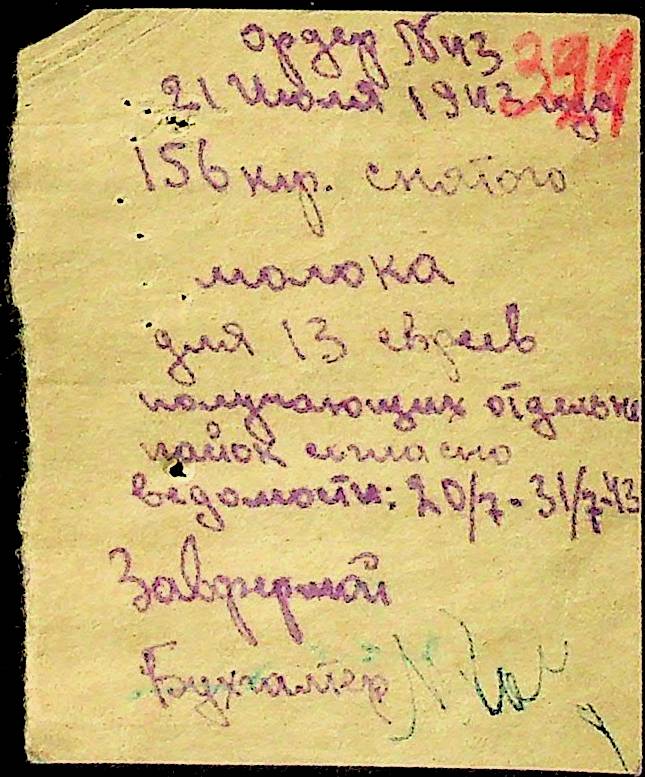 Ордер №43 391
21 Июля 1943 года
156 клр. снатого
молока
для 13 евреев
получающих отдельне
паёок согласно
ведомости: 20/7-31/7-43
Завфермой
Бухгалтер